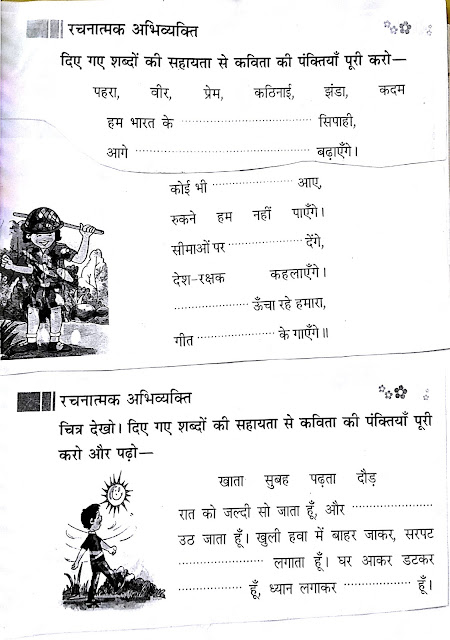 रचनात्मक अभिव्यक्ति
दिए गए शब्दों की सहायता से कविता की पंक्तियाँ पूरी करो—
पहरा, वीर, प्रेम, कठिनाई, झंडा, कदम
हम भारत के ........................ सिपाही,
आगे ........................ बढ़ाएँगे।
कोई भी ........................ आए,
रुकने हम नहीं पाएँगे।
सीमाओं पर ........................ देंगे,
देश-रक्षक कहलाएँगे।
........................ ऊँचा रहे हमारा,
गीत ........................ के गाएँगे॥
रचनात्मक अभिव्यक्ति
चित्र देखो। दिए गए शब्दों की सहायता से कविता की पंक्तियाँ पूरी
करो और पढ़ो—
खाता सुबह पढ़ता दौड़
रात को जल्दी सो जाता हूँ, और ........................
उठ जाता हूँ। खुली हवा में बाहर जाकर, सरपट
........................ लगाता हूँ। घर आकर डटकर
........................ हूँ, ध्यान लगाकर ........................ हूँ।